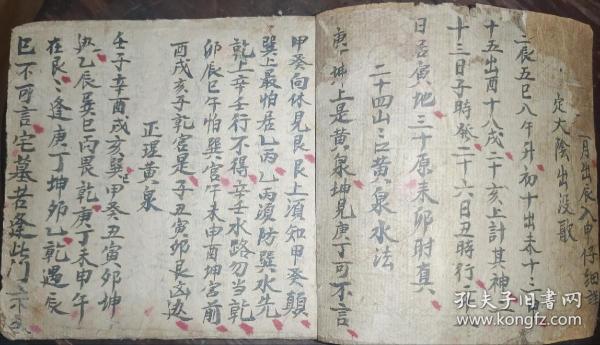 定大陰出没歌
一月出辰入申仔細
三辰五巳八午升初十出未十三
十五出酉十八戌二十亥上計其神
十三日子時發二十六日丑時行二
日居寅地三十原来卯時真
二十四山三口黄泉水法
庚丁坤上是黄泉坤見庚丁可不言
甲癸向休見艮艮上須知甲癸顛
巽上最怕居乙丙乙丙須防巽水先
乾上辛壬行不得辛壬水路勿当乾
卯辰巳午怕巽宫午未申酉坤宫前
酉戌亥子乾宫是子丑寅卯艮交決
正理黄泉
壬子辛酉戌亥巽甲癸丑寅卯坤
決乙辰巽巳丙畏乾庚丁未申午
在艮艮逢庚丁坤卯乙乾遇辰
巳不可言宅墓若逢此门
孔夫子旧書網
www.kongfz.com